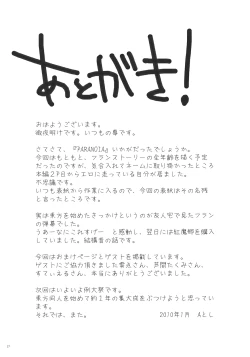 あとがき!
おはようございます。
徹夜明けです。いつもの事です。
さてさて、『PARANOIA』いかがだったでしょうか。
今回はもともと、フランストーリーの全年齢を描く予定
だったのですが、気合入れてネームに取り掛かったところ
本編2P目からエロに走っている自分が居ました。
不思議です。
いつも表紙から作業に入るので、今回の表紙はその名残
と言ったところです。
実は東方を始めたきっかけというのが友人宅で見たフラン
の弾幕でした。
うあーなにこれすげー と感動し、翌日には紅魔郷を購入
していました。結構昔の話です。
今回はおまけページとゲストを掲載しています。
ゲストにご協力頂きました
すてぃぇるさん、本当にありがとうございました。
次回はいよいよ例大祭です。
東方同人を始めて約1年の集大成をぶつけようと思ってい
ます。
それでは、また。
2010年1月